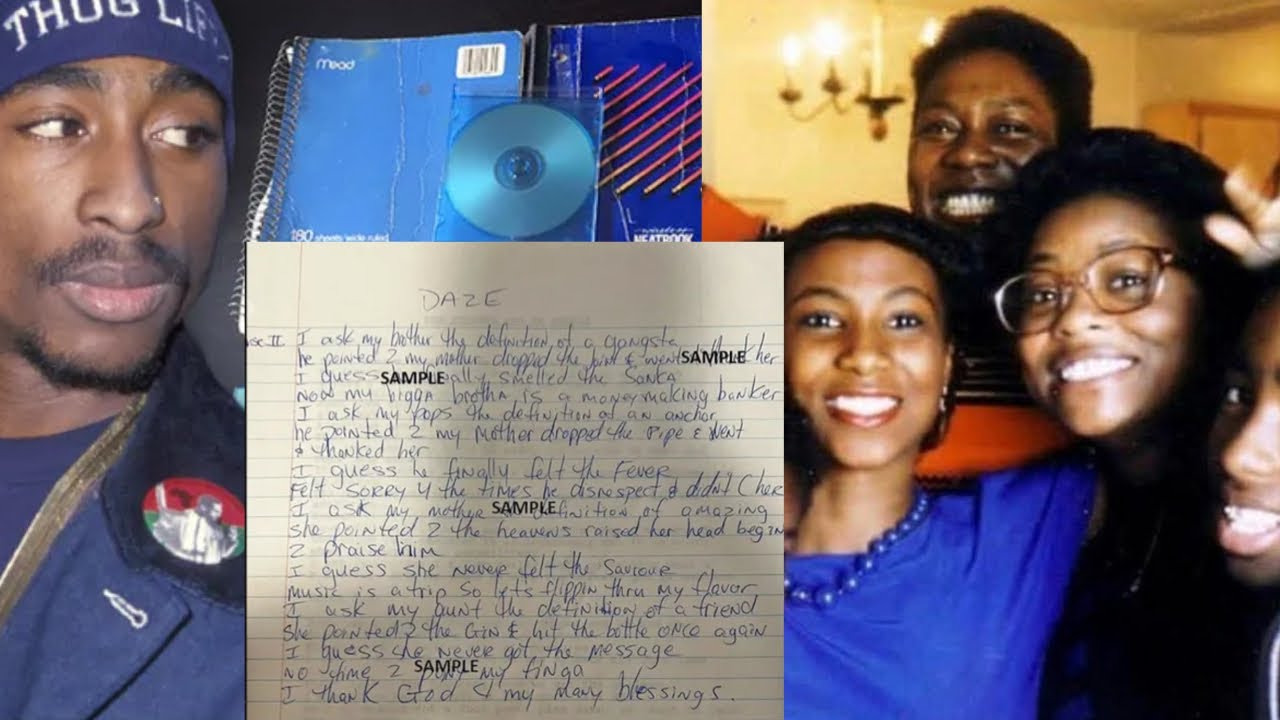 THUG LIFE
Mead
180 sheets/wide ruled
NEATBOOK
DAZE
II I ask my bother the definition of a gangsta
he pointed 2 my mother dropped the & went SAMPLE her
I guess SAMPLE smelled the Sanka
Now my bigga brotha is a moneymaking banker
I ask my pops the definition of an anchor
he pointed 2 my mother dropped the pipe & went
& thanked her
I guess he finally felt the Fever
Felt sorry 4 the times he disrespect & didn't (her
I ask my mother SAMPLE definition of amazing
She pointed 2 the heavens raised her head begin
2 praise him
I guess she never felt the Saviour
music is a trip so lets flippin thru my flavor
I ask my aunt the definition of a friend
She pointed 2 the Gin & hit the bottle once again
I guess she never got the message
no time 2 SAMPLE my finga
I thank God 4 my many blessings.